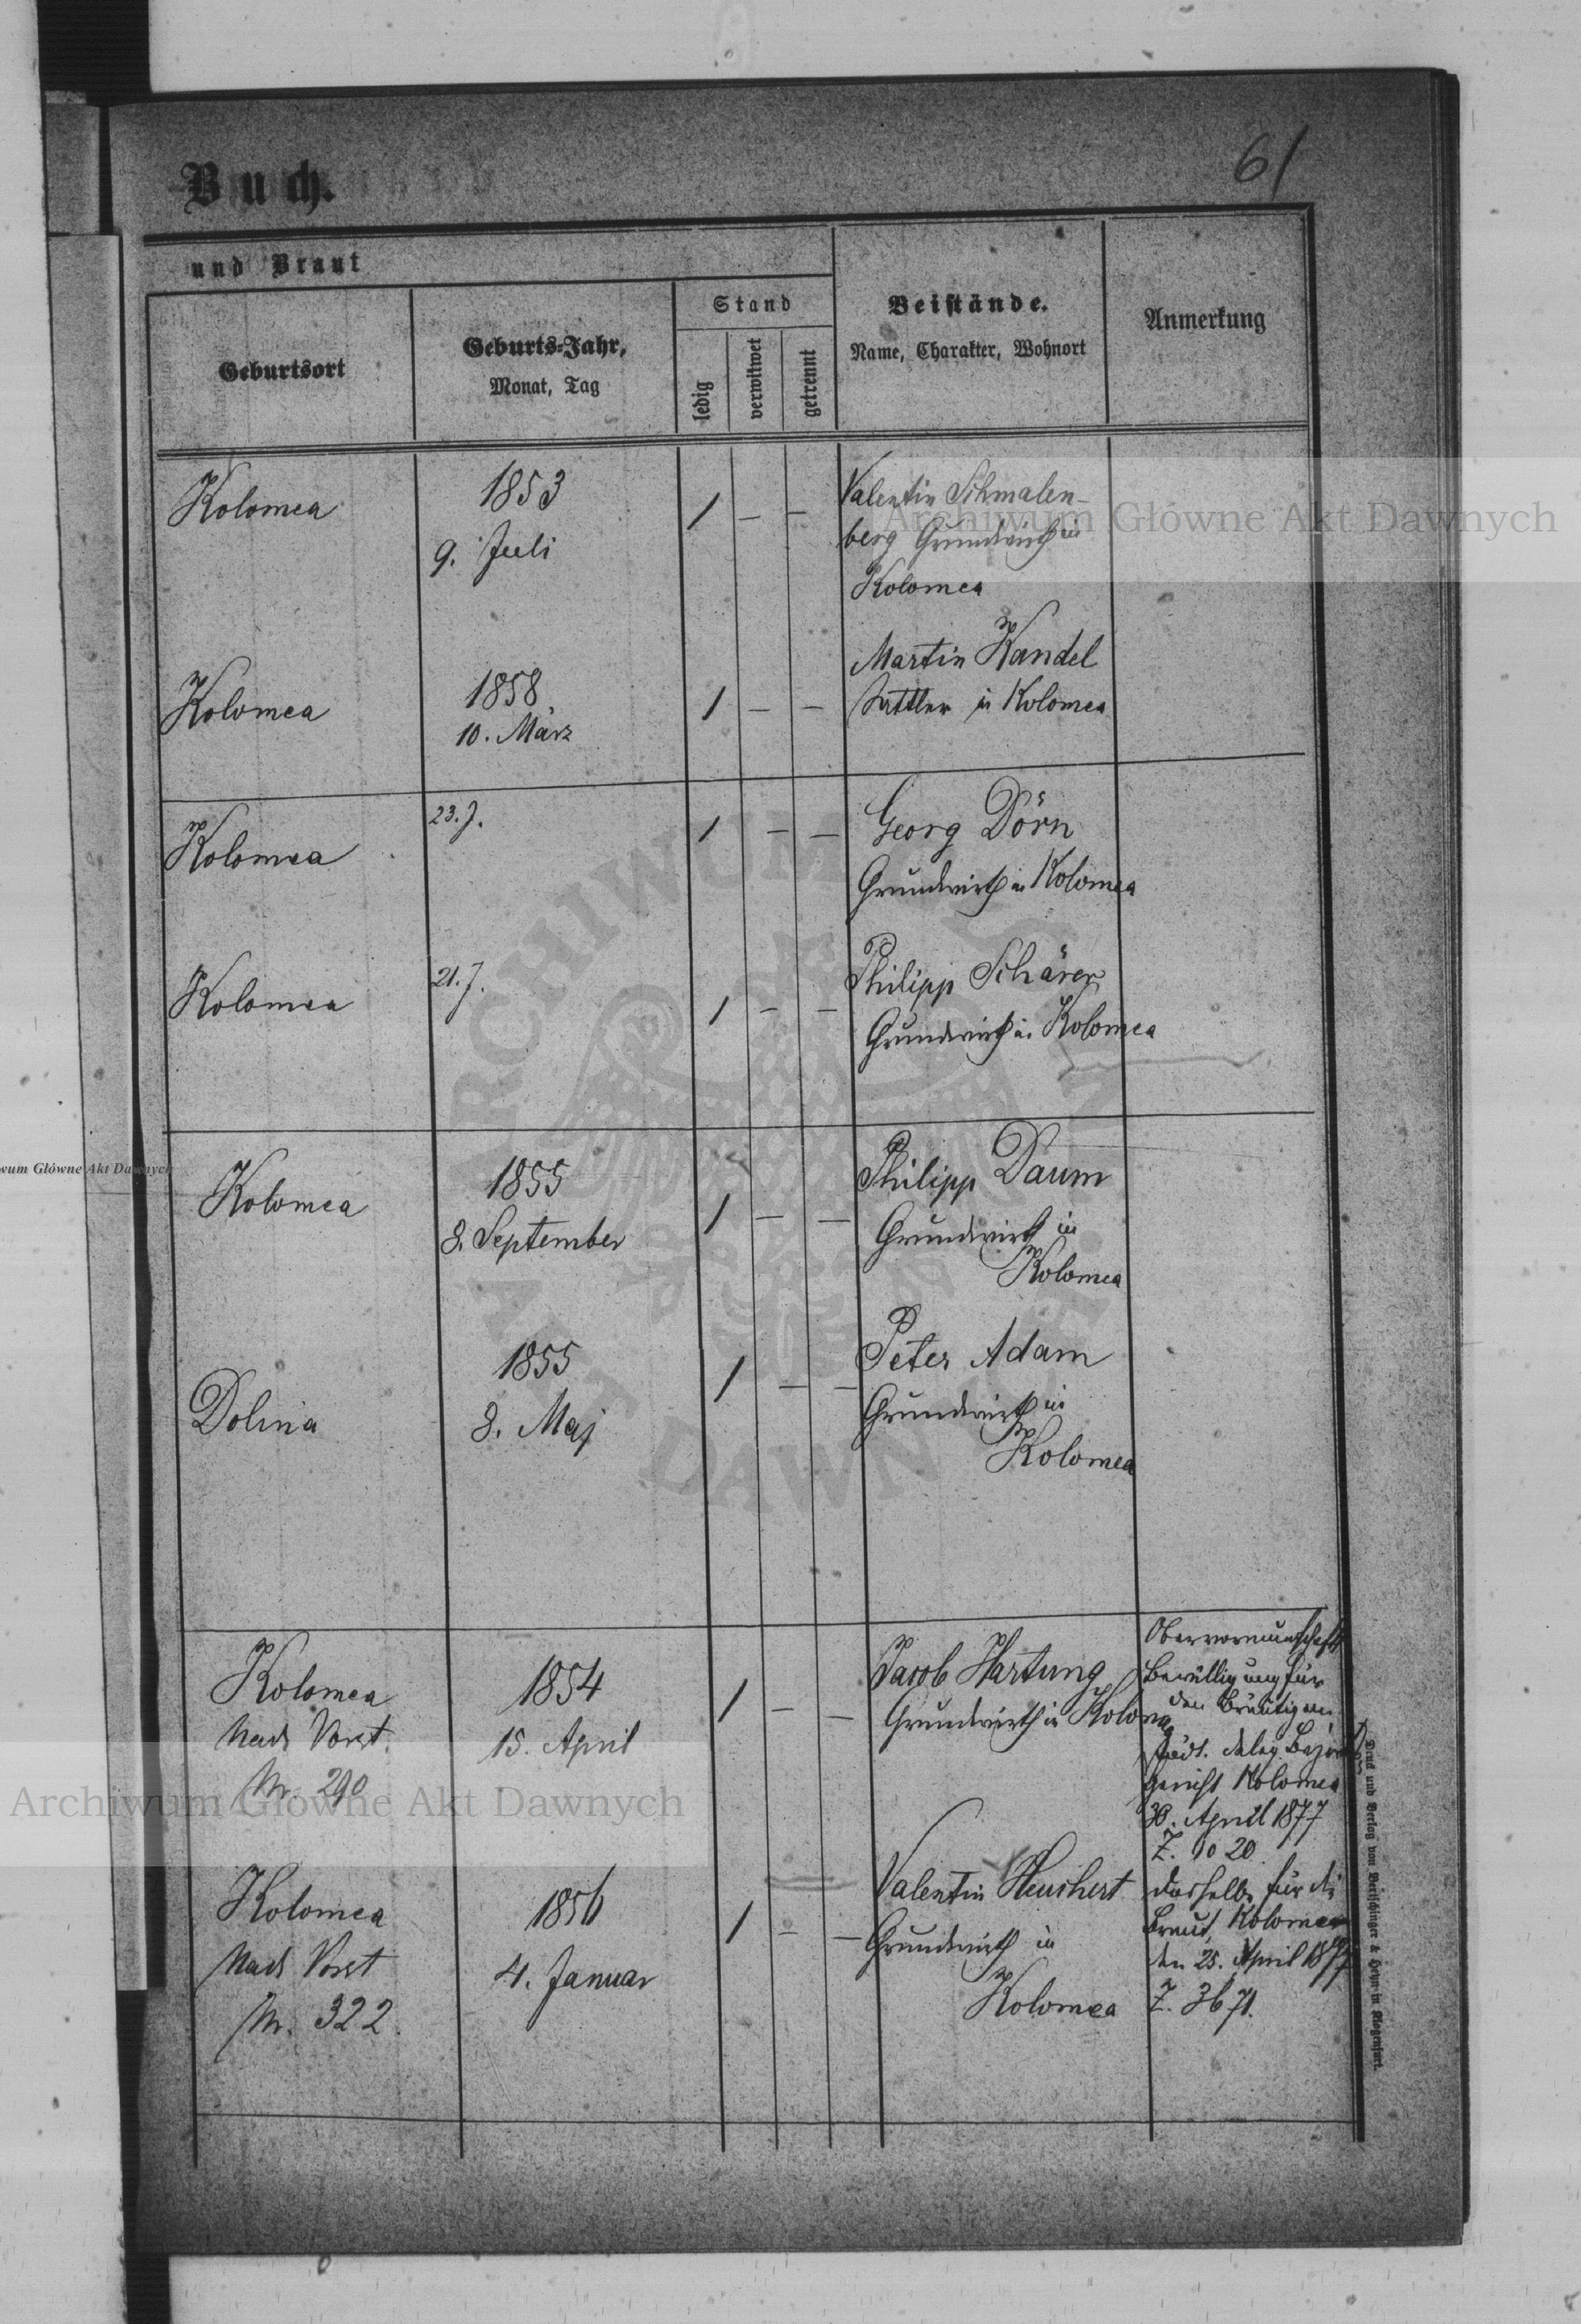 61
Buch.
und Braut
Geburtsort
Geburts-Jahr,
Monat, Tag
Stand
ledig
verwitwet
getrennt
Beistände.
Name, Charakter, Wohnort
Anmerkung
Kolomea
1853
9. Juli
/ — —
Valentin Schmalen-
berg Grundwirth in
Kolomea
Kolomea
1858
10. März
/ — —
Martin Kandel
Sattler in Kolomea
Kolomea
23. J.
/ — —
Georg Dörn
Grundwirth in Kolomea
Kolomea
21. J.
/ — —
Philipp Schärer
Grundwirth in Kolomea
Kolomea
1855
8. September
/ — —
Philipp Daum
Grundwirth in
Kolomea
Dolina
1855
8. Maj
/ — —
Peter Adam
Grundwirth in
Kolomea
Kolomea
Nad. Vorst.
Nr. 290
1854
15. April
/ — —
Jacob Hartung
Grundwirth in Kolomea
Obervormundschaftl
Bewilligung für
den Bräutigam,
städt. deleg. Bezirks
gericht Kolomea
30. April 1877
Z. 1020
Kolomea
Nad. Vorst
Nr. 322.
1856
4. Januar
/ — —
Valentin Heuchert
Grundwirth in
Kolomea
dasselbe für die
Braut, Kolomea
den 25. April 1877
Z. 3671.
Druck und Verlag von Bertschinger & Heyn in Klagenfurt.
Archiwum Główne Akt Dawnych
wum Główne Akt Dawnych
ARCHIWUM
AKT DAWNYCH
Archiwum Główne Akt Dawnych